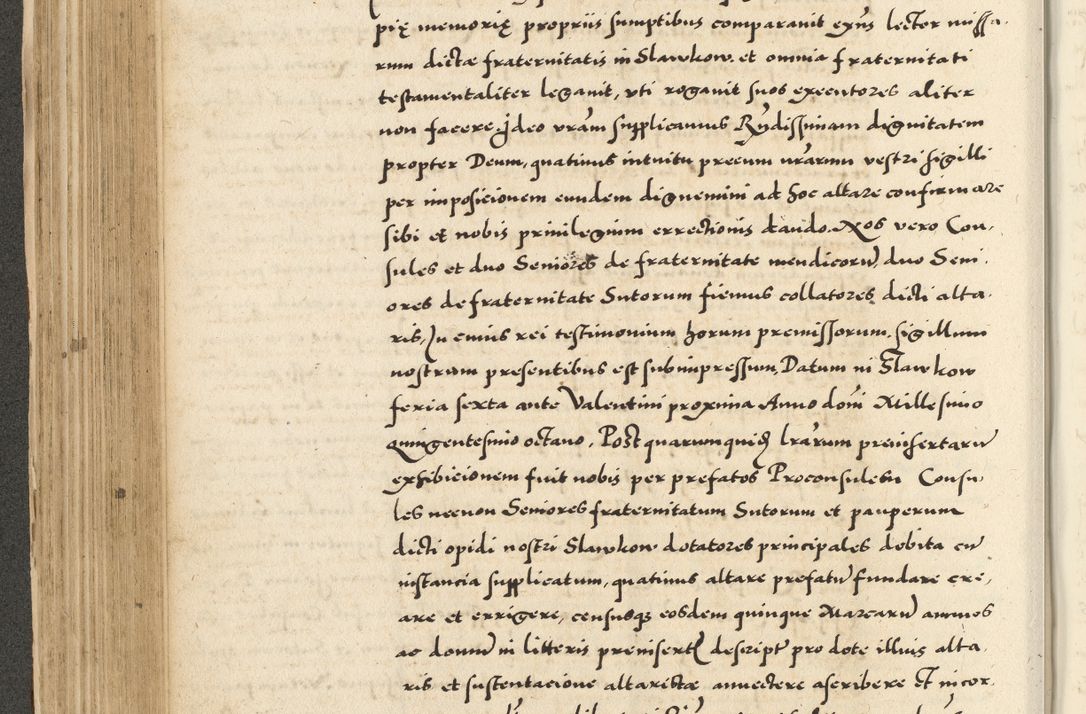 pię memorię propriis sumptibus comparavit exns lector missa-
rum dictæ fraternitatis in Slawkow et omnia fraternitati
testamentaliter legavit, uti rogavit suos executores aliter
non facere, Jdeo vram supplicamus Rndissimam dignitatem
propter Deum, quatinus intuitu precum nrarum vestri sigilli
per imposicionem eundem dignemini ad hoc altare confirmare
sibi et nobis privilegium errectionis dando. Nos vero Con-
sules et duo Seniores de fraternitate mendicorum, duo Seni-
ores de fraternitate Sutorum fiemus collatores dicti alta-
ris, Jn cuius rei testimonium horum premissorum, sigillum
nostrum presentibus est subimpressum, Datum in Slawkow
feria sexta ante Valentini proxima Anno doni Millesimo
quingentesimo octavo. Post quarumquid lrarum preinsertaru
exhibicionem fuit nobis per prefatos Proconsulem Consu-
les necnon Seniores fraternitatum Sutorum et pauperum
dicti opidi nostri Slawkow dotatores principales debita cu
instancia supplicatum, quatinus altare prefatu fundare cre-
are et errigere, censusq eosdem quinque Marcaru annuos
ac domu in litteris preinsert descript pro dote illius alta-
ris et sustentacione altaristæ annectere ascribere Et incor-